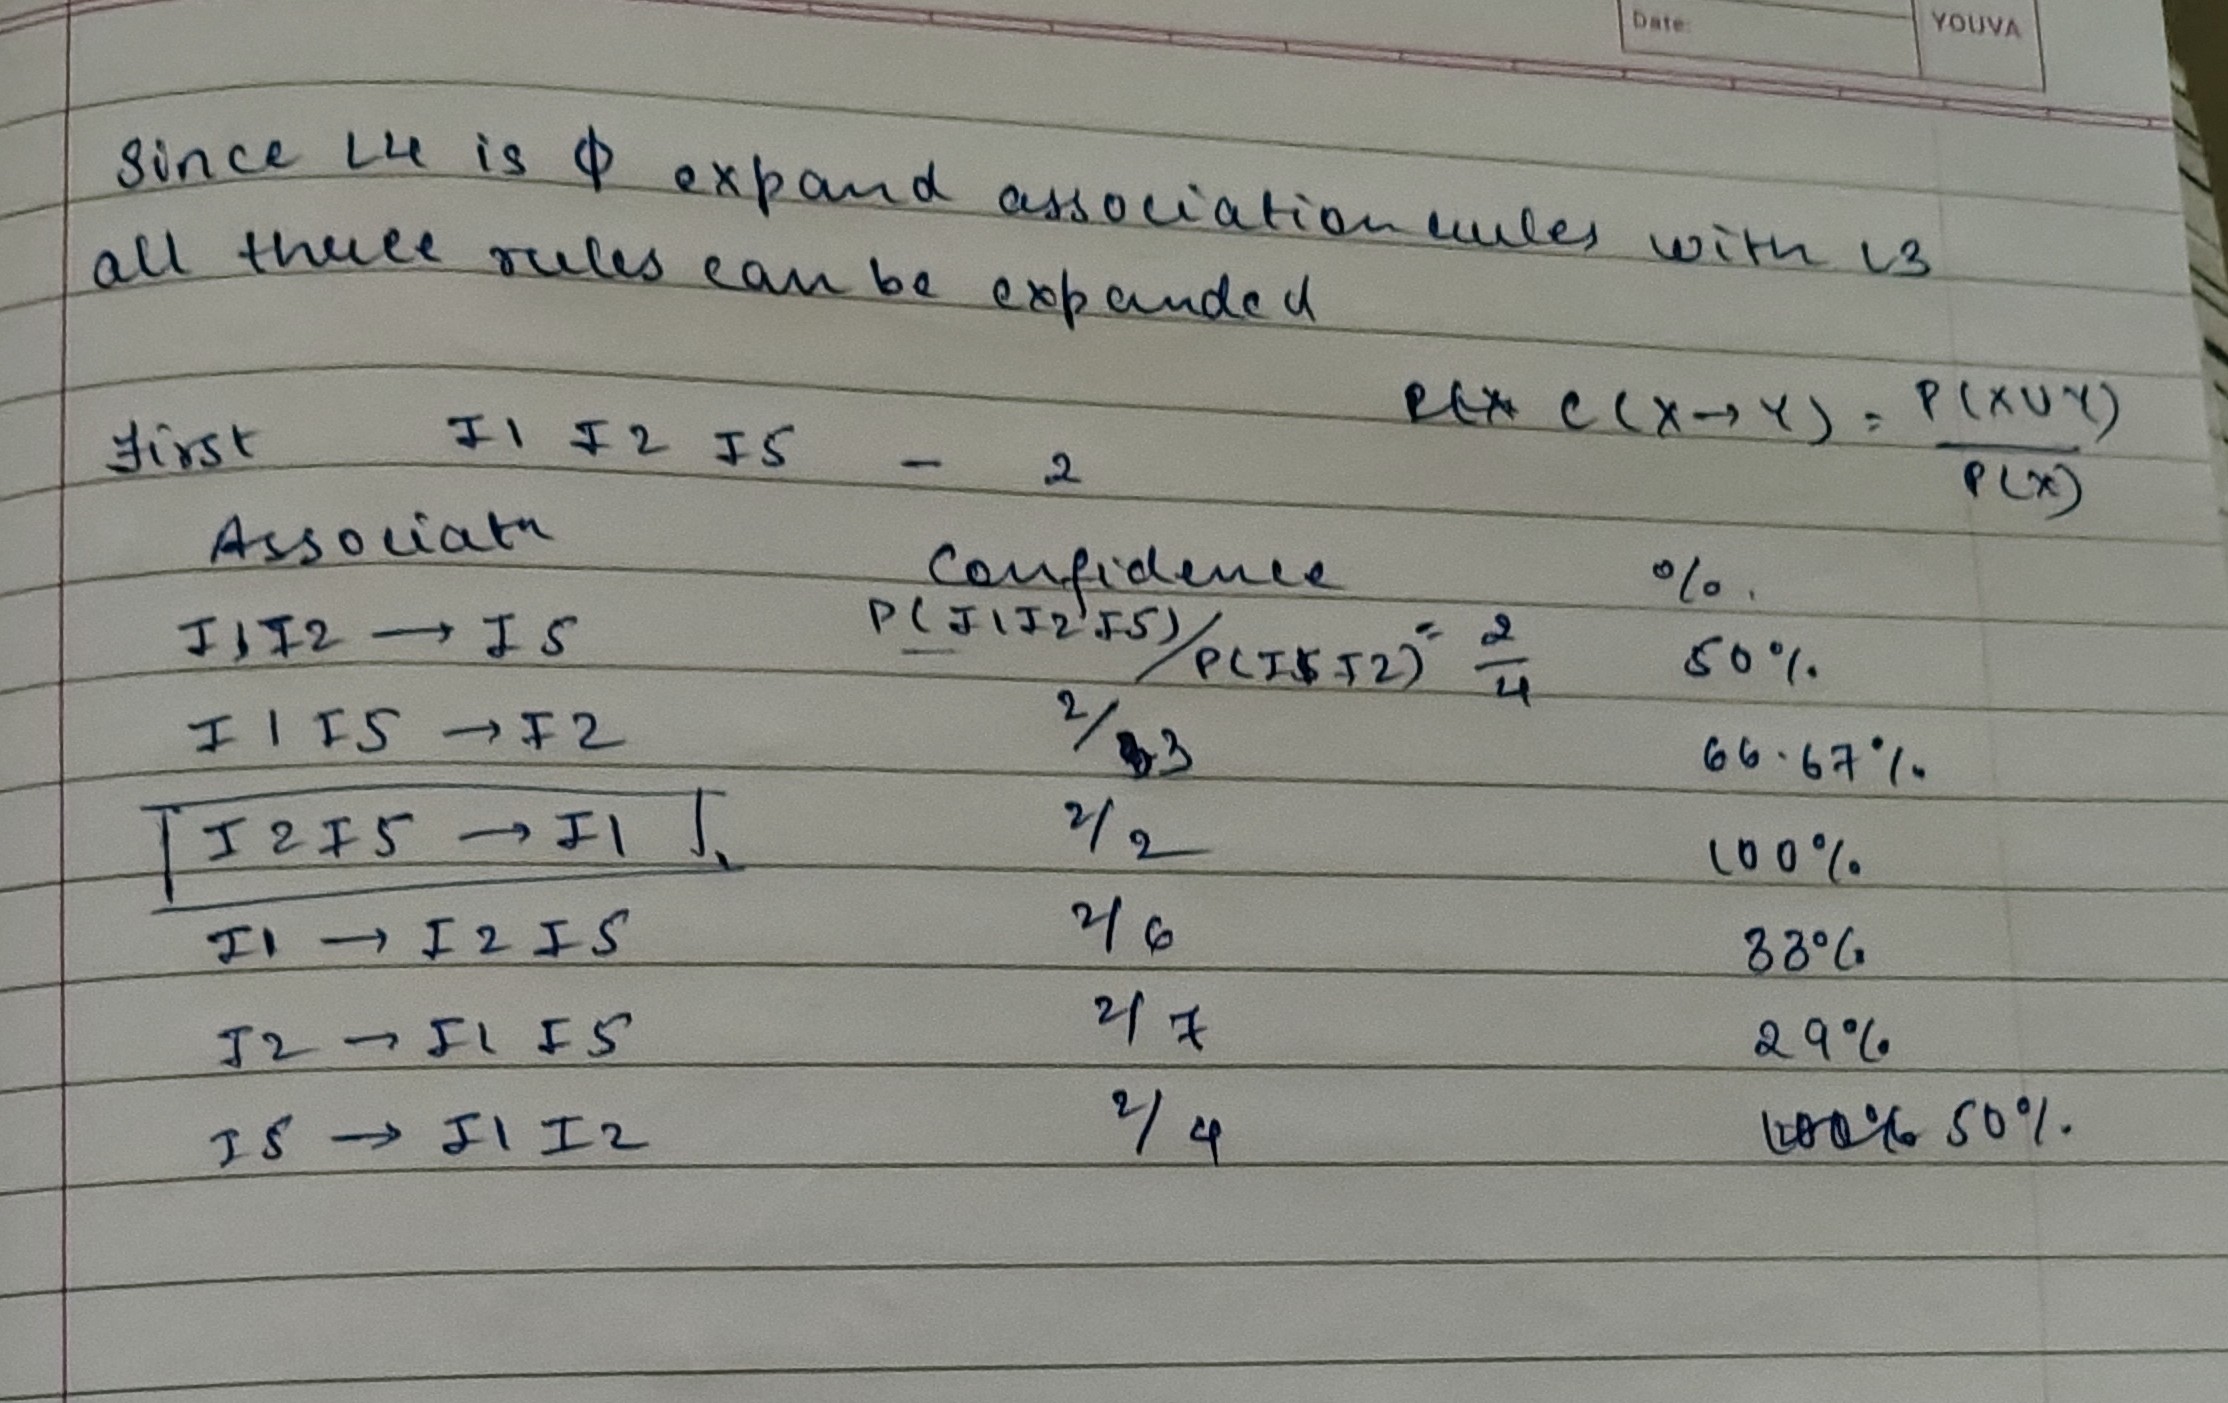 Date:
YOUVA
Since L4 is ϕ expand association rules with L3
all three rules can be expanded
C(X→Y) = P(XUY)/P(X)
First I1 I2 I5 - 2
Associatn Confidence %.
I1I2 → I5 P(I1I2I5)/P(I1 I2) = 2/4 50%
I1 I5 → I2 2/3 66.67%
I2 I5 → I1 2/2 100%
I1 → I2 I5 2/6 33%
I2 → I1 I5 2/7 29%
I5 → I1 I2 2/4 50%